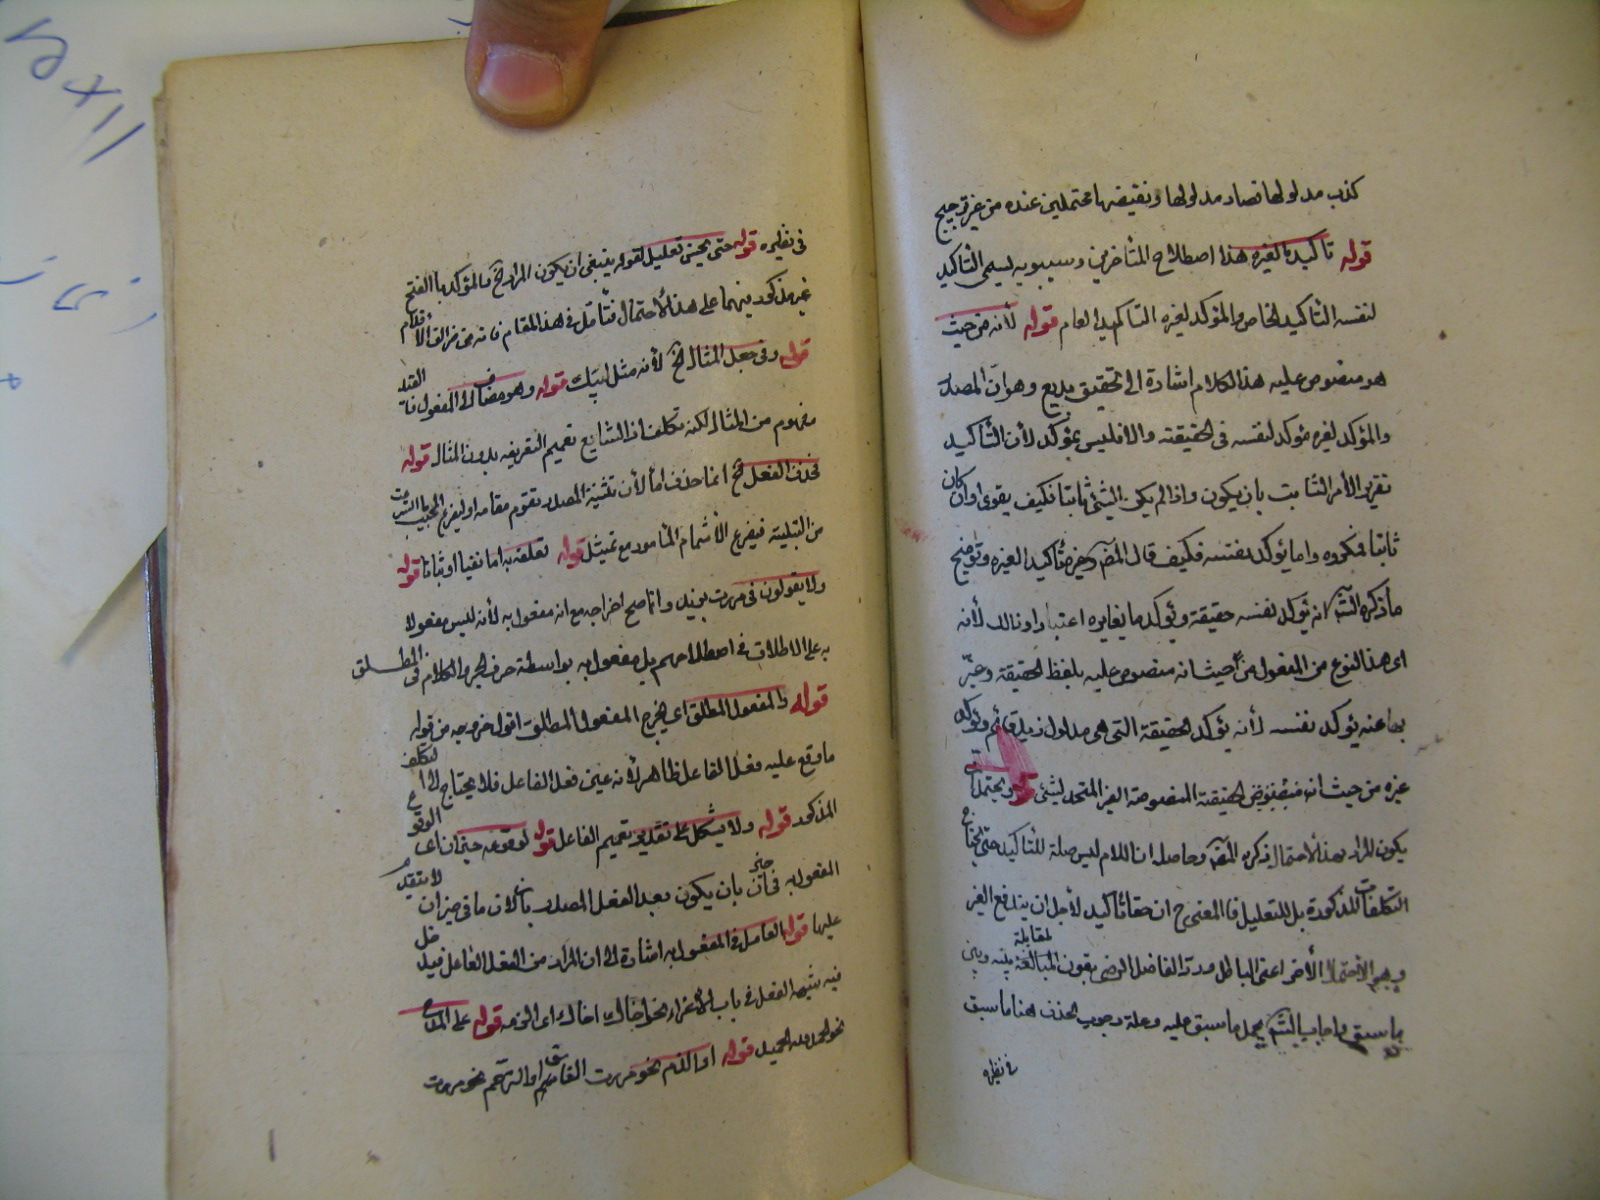 كذب مدلولها فصار مدلولها ونقيضها محتملين عنده من غير ترجيح
قوله تأكيدا لغيره هذا اصطلاح المتأخرين وسيبويه يسمى التأكيد
لنفسه التأكيد الخاص والمؤكد لغيره التأكيد العام قوله لأنه من حيث
هو منصوص عليه هذا الكلام اشارة الى تحقيق بديع وهو ان المصدر
والمؤكد لغيره مؤكد لنفسه فى الحقيقة والا فليس بمؤكد لأن التأكيد
تقرير الأمر الثابت بان يكون واذا لم يكن الشئ ثابتا فكيف يقوى وان كان
ثابتا فمكرره وانما يؤكد بنفسه فكيف قال المص تأكيدا لغيره وتوضيح
ما ذكره الش انه يؤكد نفسه حقيقة ويؤكد ما يغايره اعتبارا وذلك لأنه
اى هذا النوع من المفعول من حيث انه منصوص عليه بلفظ الحقيقة وعبر
بها عنه يؤكد نفسه لأنه يؤكد الحقيقة التى هى مدلول زيد قائم ويؤكد
غيره من حيث انه الحقيقة المنصوصة الغير المتحد لشئ قوله ويحتمل ان
يكون المراد بهذا الاحتمال ذكره المص وحاصله ان اللام ليس صلة للتأكيد حتى يحتاج
التكلفات المذكورة بل للتعليل فالمعنى ح ان حقا تأكيد لأجل ان يندفع الغير
وهو الاحتمال الأخر اعنى الباطل الفاضل الرضى بفوت المبالغة لمقابلة بينه وبين
ما سبق واجاب الش بحمل ما سبق عليه وعلة وجوب الحذف هنا ما سبق
فى نظيره
فى نظيره قوله حتى يحسن تعليل لقوله ينبغى ان يكون المراد الخ فالمؤكد بالفتح
غير مذكور فيهما على هذا الاحتمال فتأمل فى هذا المقام فانه من مزالق الأقدام
قوله وفى جعل المثال الخ لأنه مثل لبيك قوله وهو مضاف الى المفعول فان القيد
مفهوم من المثال لكنه تكلف اذ الشايع تعميم التعريف بدون المثال قوله
فحذف الفعل الخ انما حذف اما لأن تثنية المصدر تقوم مقامه او ليفرغ المجيب بالسرعة
من التلبية فيفرغ لاستماع المأمور مع تمثيل قوله تعلقه به اما نفيا او اثباتا قوله
ولا يقولون فى مررت بزيد وانما صح اخراجه مع انه مفعول به لأنه ليس مفعولا
به على الاطلاق فى اصطلاحهم بل مفعول به بواسطة حرف الجر والكلام فى المطلق
قوله والمفعول المطلق اى يخرج المفعول المطلق اقول خروجه من قوله
ما وقع عليه فعل الفاعل ظاهر لأنه عين فعل الفاعل فلا يحتاج الى التكلف
المذكور قوله ولا يشكل على تقدير تعميم الفاعل قوله لوقوعه حيز ان اى الوقوع
المفعول به فى حيز ان بان يكون بعد الفعل المصدر بان لان ما فى حيز ان لا يتقدم
عليها قوله العامل فى المفعول به اشارة الى ان المراد من الفعل العامل فيدخل
فيه شبه الفعل فى باب الاغراء نحو اخاك اخاك اى الزمه قوله على المدح
نحو الحمد لله الحميد قوله او الذم نحو مررت الفاسق او الترحم نحو مررت